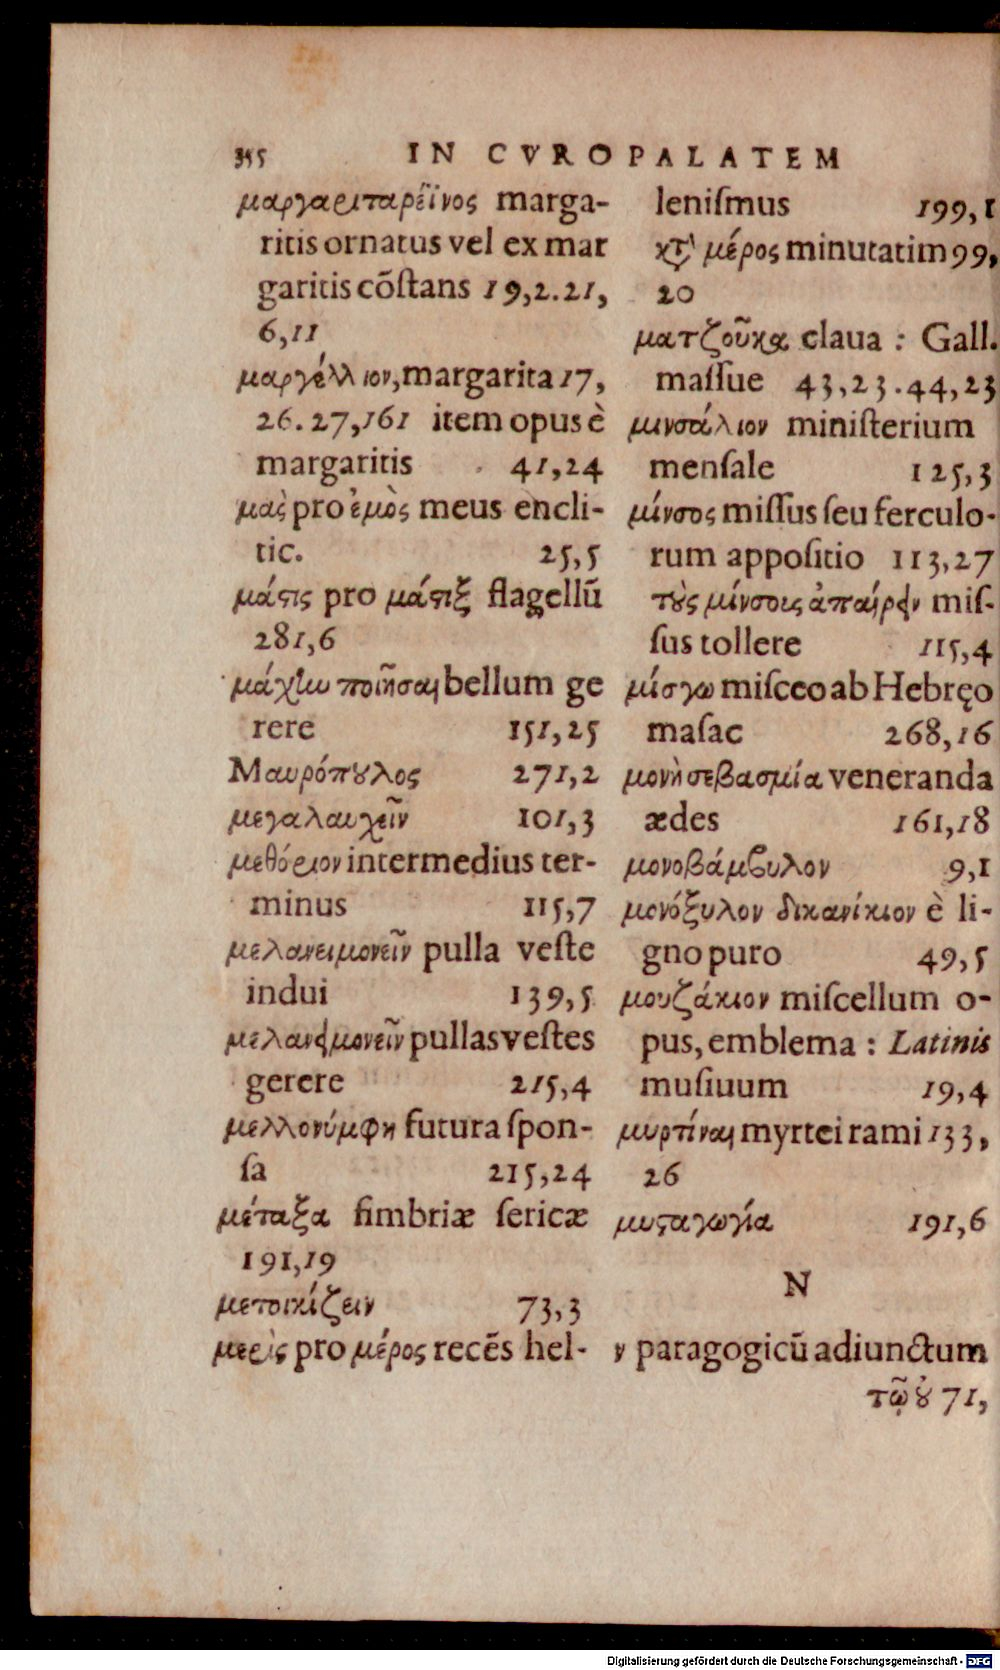 355 IN CVROPALATEM
μαργαριταρέϊνος marga-
ritis ornatus vel ex mar
garitis cõſtans 19,2.21,
6,11
μαργέλλιον, margarita 17,
26.27,161 item opus è
margaritis 41,24
μὰς pro ἐμὸς meus encli-
tic. 25,5
μάϛις pro μάϛιξ flagellũ
281,6
μάχην ποιῆσαι bellum ge
rere 151,25
Μαυρόπȣλος 271,2
μεγαλαυχεῖν 101,3
μεθόριον intermedius ter-
minus 115,7
μελανειμονεῖν pulla veſte
indui 139,5
μελανειμονεῖν pullas veſtes
gerere 215,4
μελλονύμφη futura ſpon-
ſa 215,24
μέταξα fimbriæ ſericæ
191,19
μετοικίζειν 73,3
μερὶς pro μέρος recẽs hel-
leniſmus 199,1
κτ' μέρος minutatim 99,
20
ματζοῦκα claua : Gall.
maſſue 43,23.44,23
μινσάλιον miniſterium
menſale 125,3
μίνσος miſſus ſeu ferculo-
rum appoſitio 113,27
τȣ̀ς μίνσοις ἀπαίρειν miſ-
ſus tollere 115,4
μίσγω miſceo ab Hebręo
maſac 268,16
μονὴ σεβασμία veneranda
ædes 161,18
μονοβάμβυλον 9,1
μονόξυλον δικανίκιον è li-
gno puro 49,5
μουζάκιον miſcellum o-
pus, emblema : Latinis
muſiuum 19,4
μυρτίναι myrtei rami 133,
26
μυϛαγωγία 191,6
N
ν paragogicũ adiunctum
τῷ ȣ̓ 71,
Digitalisierung gefördert durch die Deutsche Forschungsgemeinschaft - DFG